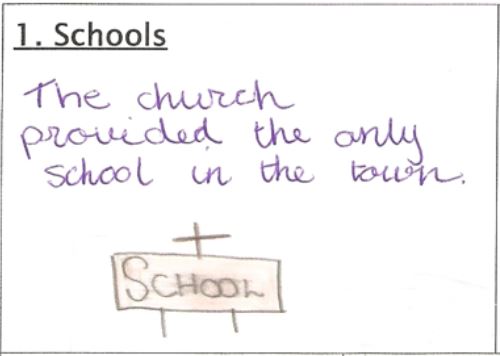 1. Schools
The church
provided the only
school in the town.
SCHOOL